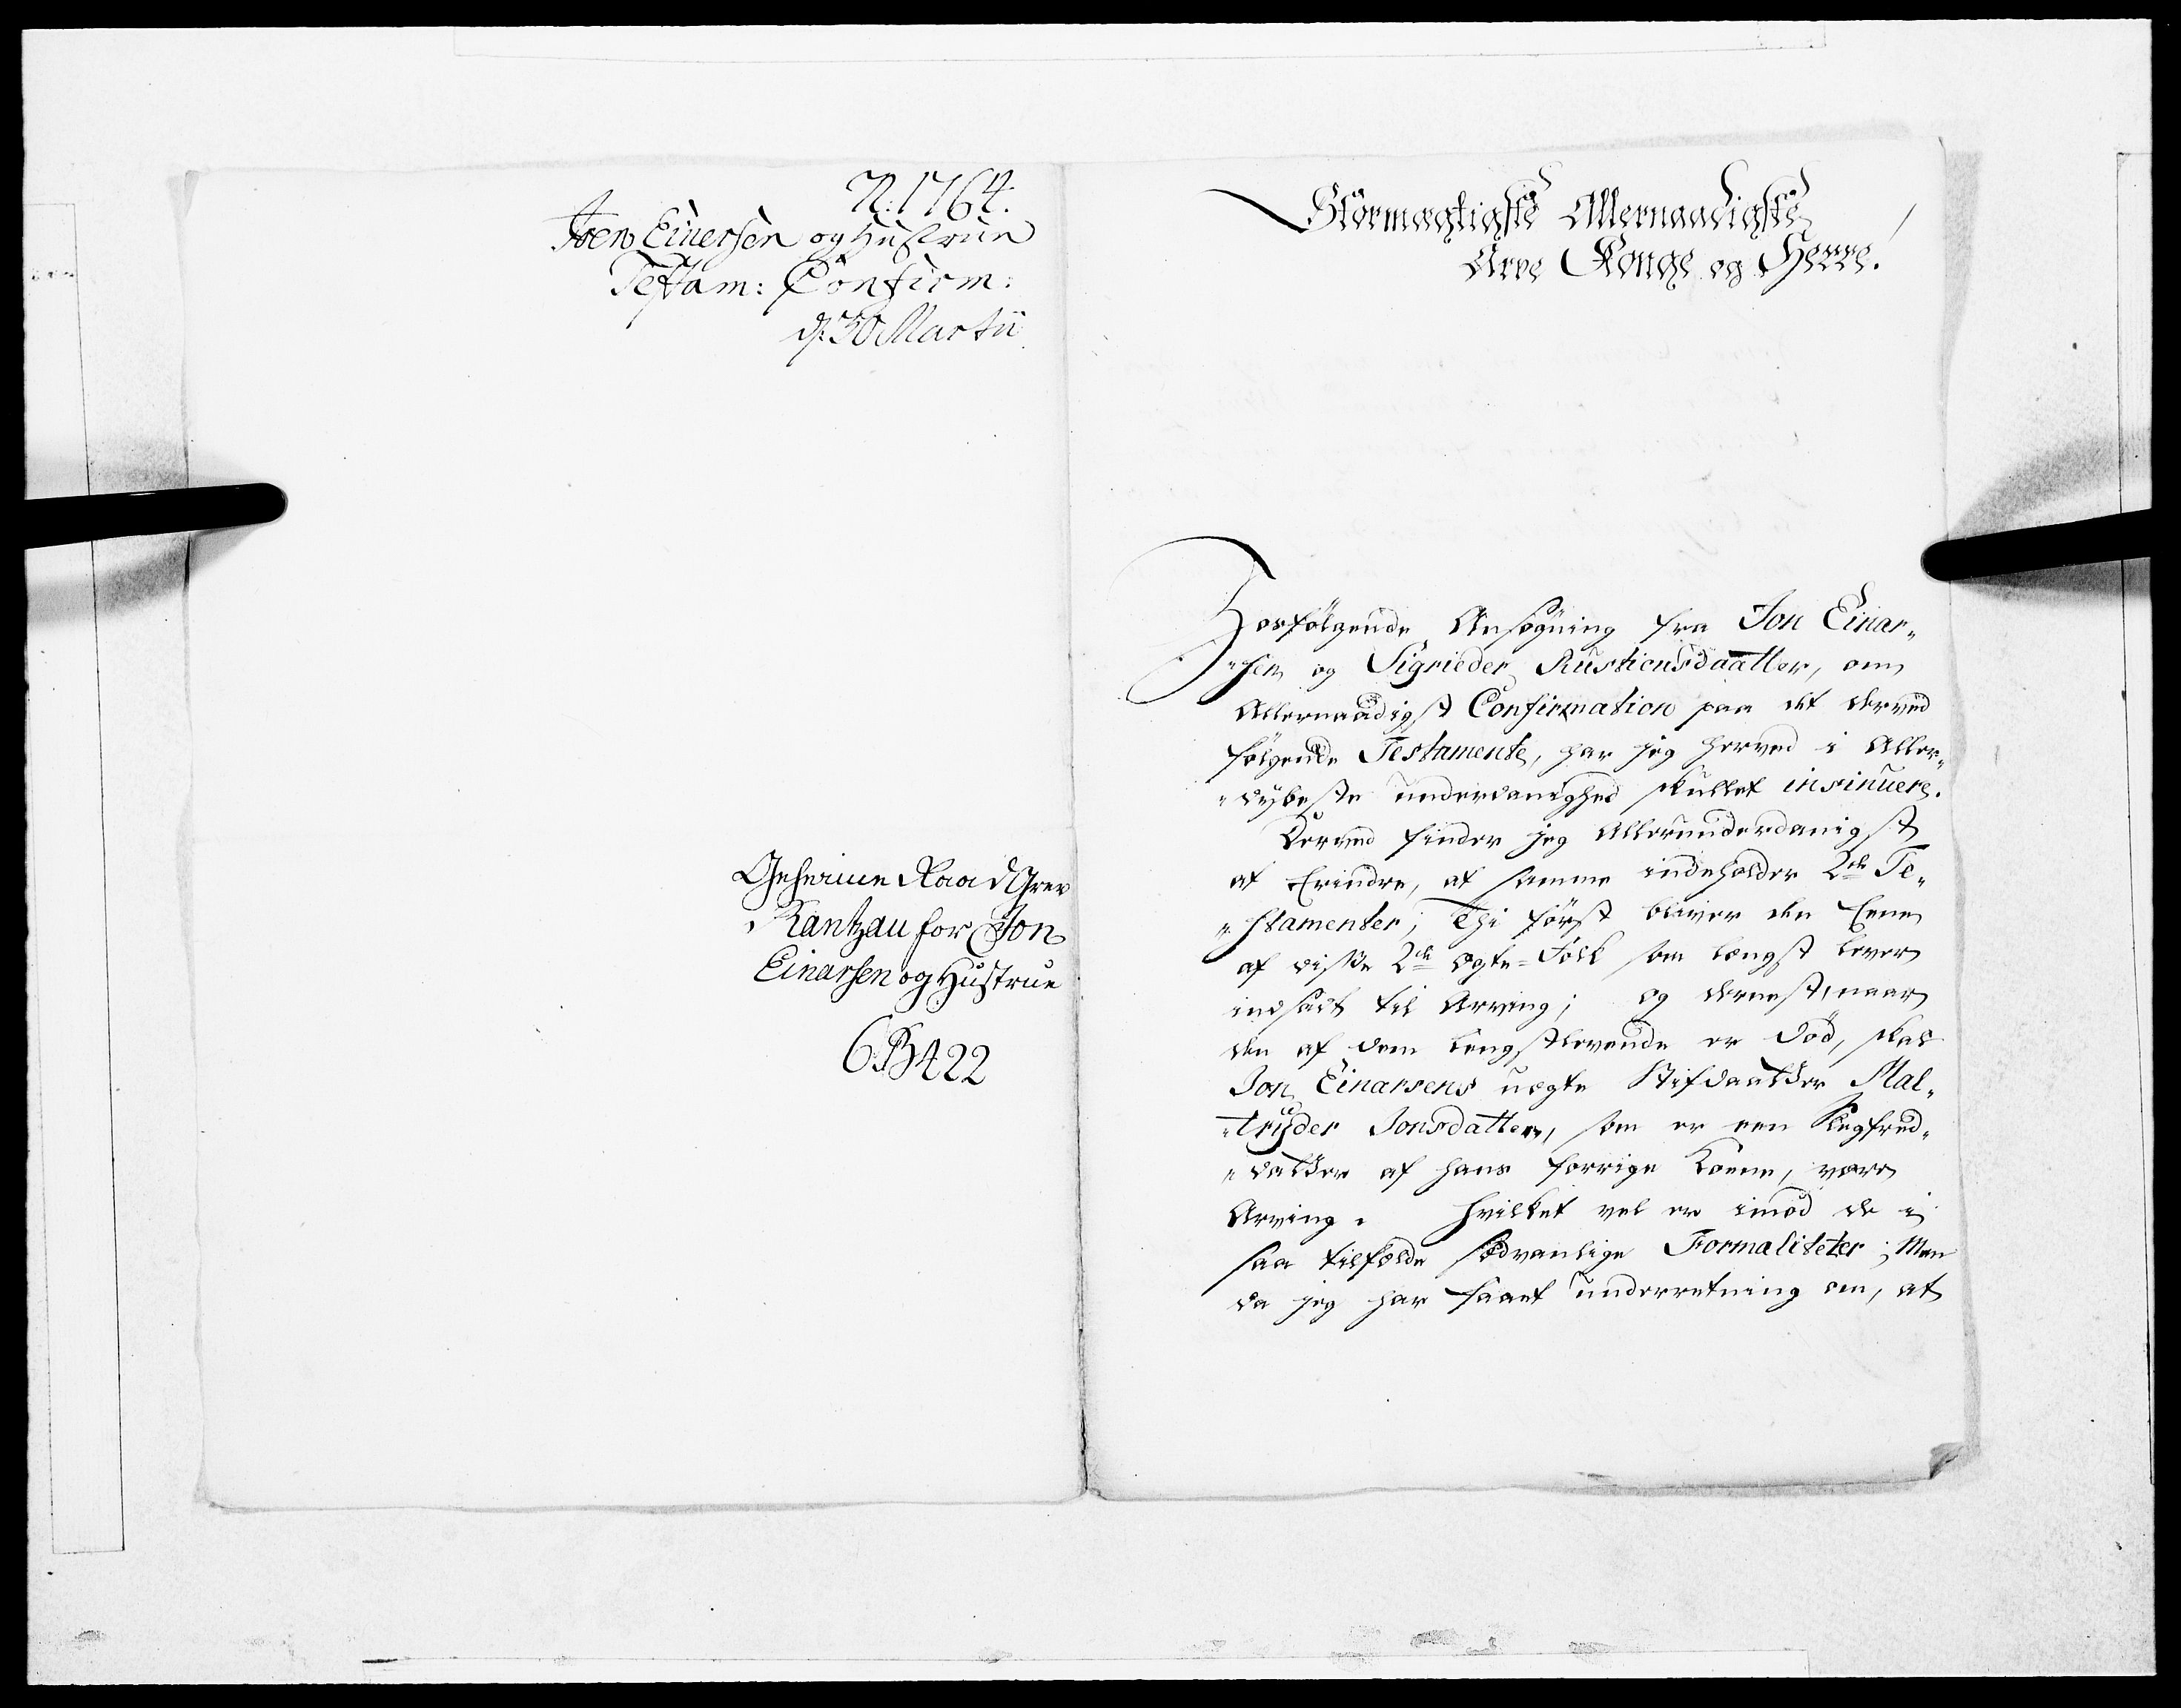 N: 1764.
Iver Einersen og Hustrue
Testam: Confirm:
d: 30 Martii
Geheime Raad Grev
Rantzau for Jon
Einarsen og Hustrue
6 B 422
Stormægtigste Allernaadigste
Arve Konge og Herre!
Hosfølgende Ansøgning fra Jon Einar„
„sen og Sigrieder Rustiensdaatter, om
Allernaadigst Confirmation paa det derved
følgende Testamente, har jeg herved i Aller„
„dybeste underdanighed skullet insinuere.
Derved finder jeg Allerunderdanigst
at Erindre, at samme indeholder 2de Te„
„stamenter; Thi først bliver den Eene
af disse 2de Ægte-Folk som længst lever
indsadt til Arving; og dernest, naar
den af dem længstlevende er død, skal
Jon Einarsens uægte Stifdaatter Mal„
„tryder Jonsdatter, som er een Slegfred„
„datter af hans forrige Kone, være
Arving. Hvilket vel er imod de i
saa tilfælde sædvanlige Formaliteter; Men
da jeg har faaet underretning om, at